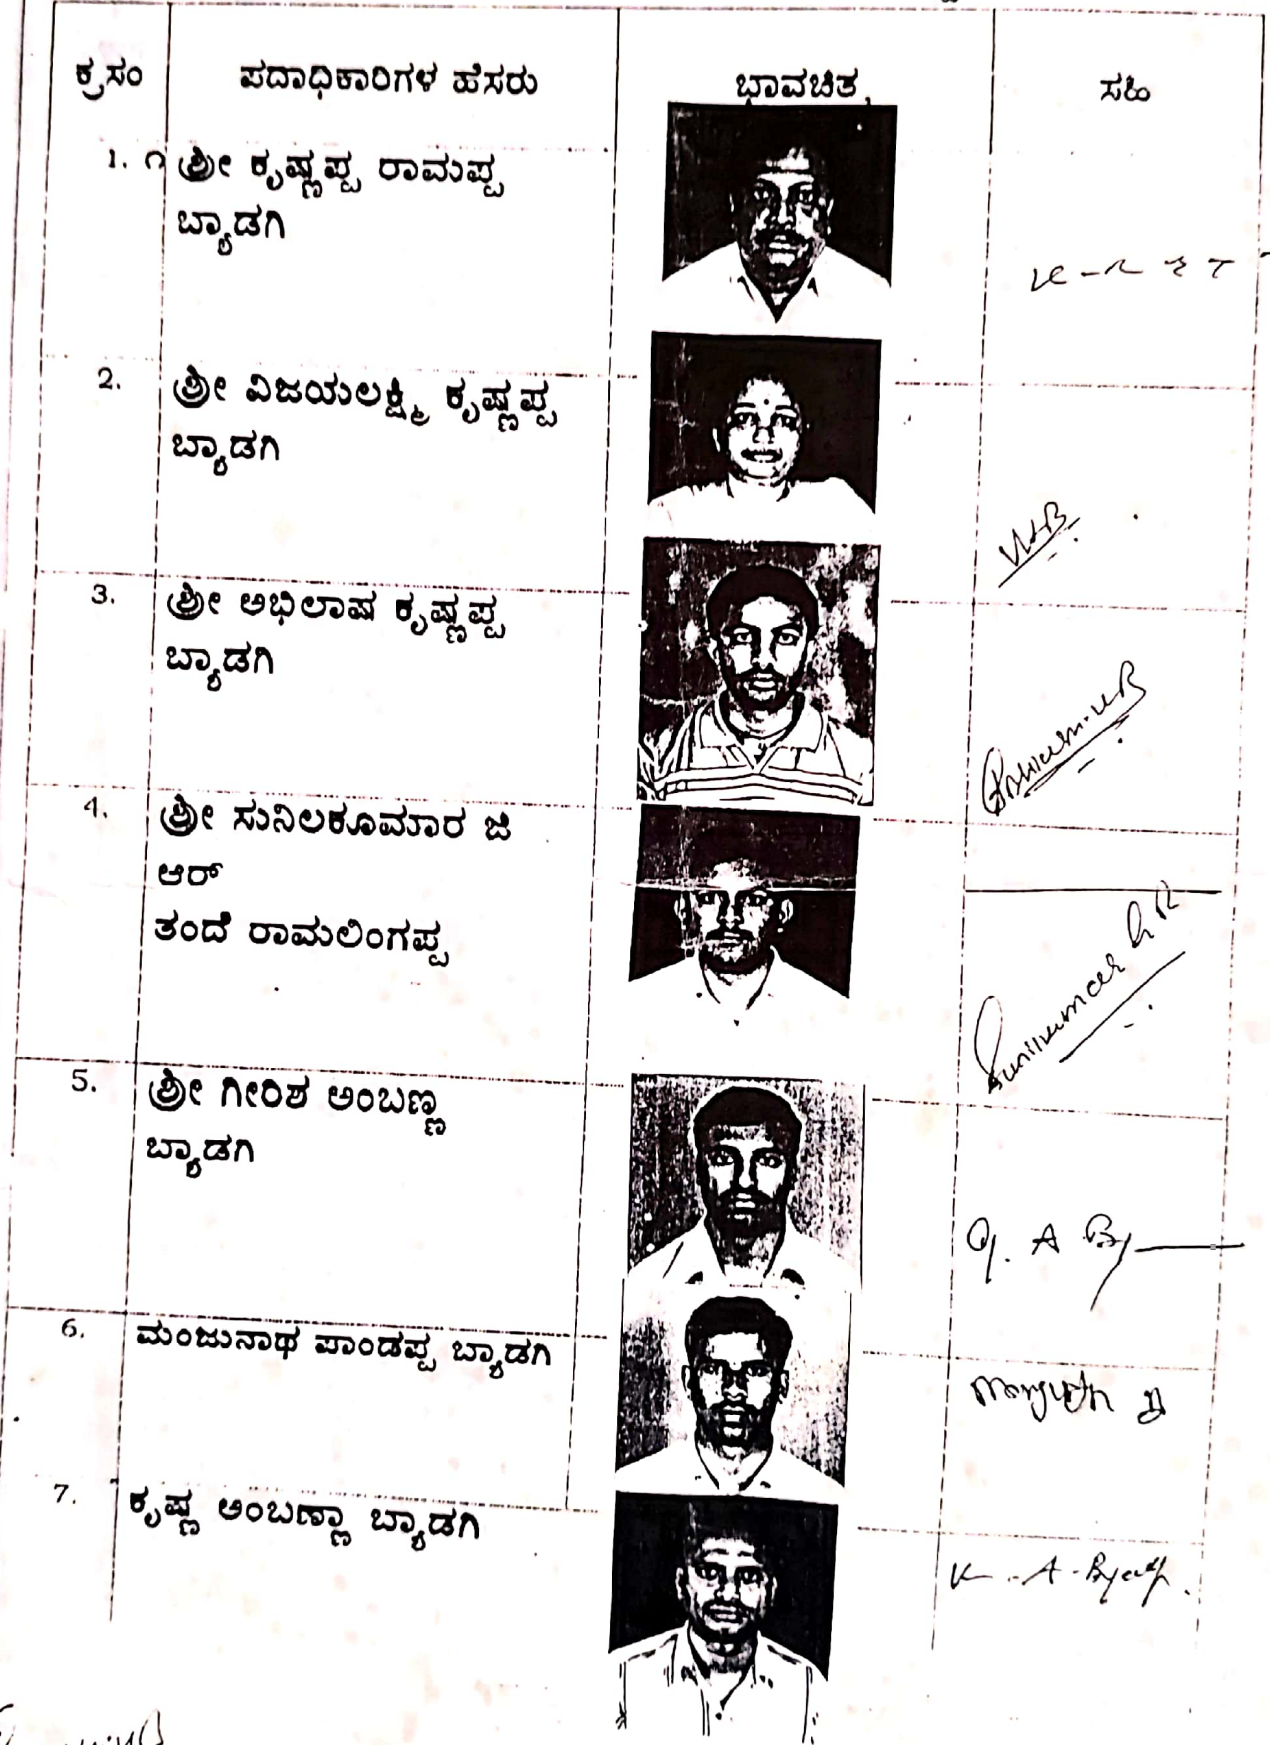 ಕ್ರಸಂ ಪದಾಧಿಕಾರಿಗಳ ಹೆಸರು ಭಾವಚಿತ್ರ ಸಹಿ
1. ಶ್ರೀ ಕೃಷ್ಣಪ್ಪ ರಾಮಪ್ಪ
ಬ್ಯಾಡಗಿ
2. ಶ್ರೀ ವಿಜಯಲಕ್ಷ್ಮಿ ಕೃಷ್ಣಪ್ಪ
ಬ್ಯಾಡಗಿ
3. ಶ್ರೀ ಅಭಿಲಾಷ ಕೃಷ್ಣಪ್ಪ
ಬ್ಯಾಡಗಿ
4. ಶ್ರೀ ಸುನಿಲಕೂಮಾರ ಜಿ
ಆರ್
ತಂದೆ ರಾಮಲಿಂಗಪ್ಪ
Sunilkumar G R
5. ಶ್ರೀ ಗೀರಿಶ ಅಂಬಣ್ಣ
ಬ್ಯಾಡಗಿ
G. A By
6. ಮಂಜುನಾಥ ಪಾಂಡಪ್ಪ ಬ್ಯಾಡಗಿ
7. ಕೃಷ್ಣ ಅಂಬಣ್ಣಾ ಬ್ಯಾಡಗಿ
K. A.